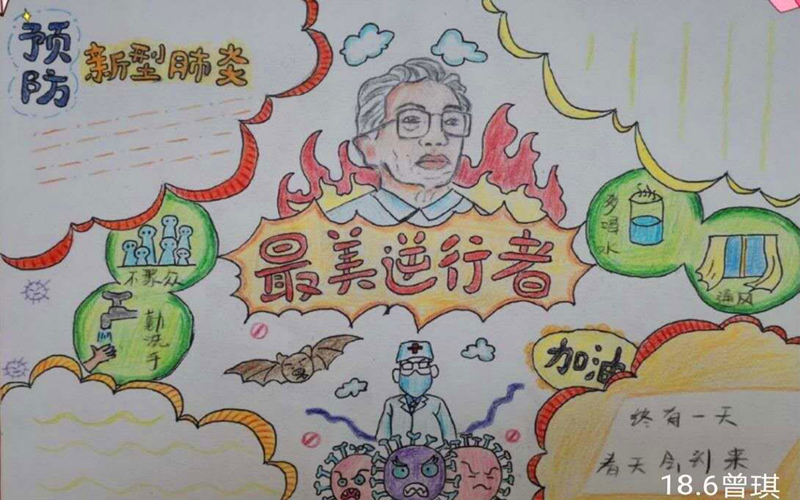 预防
新型肺炎
最美逆行者
不聚众
勤洗手
多喝水
通风
加油
终有一天
春天会到来
18.6曾琪